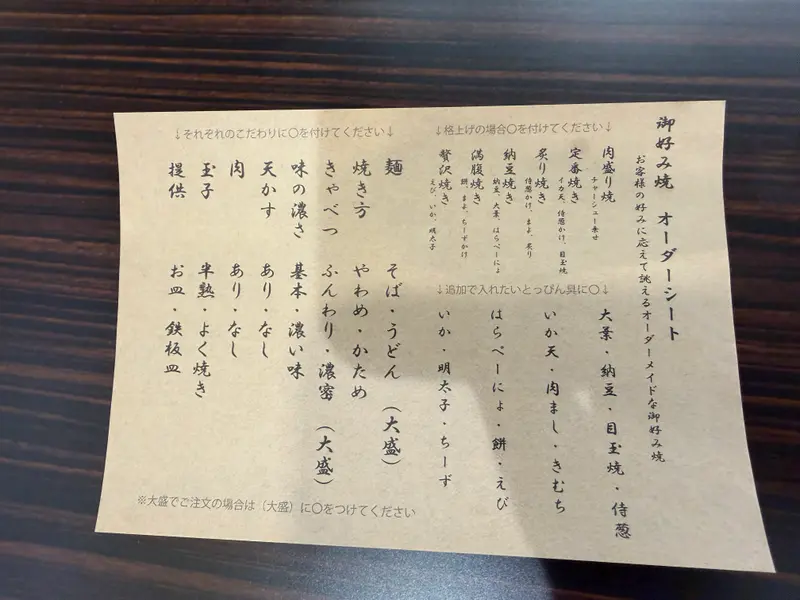 御好み焼 オーダーシート
お客様の好みに応えて誂えるオーダーメイドな御好み焼
↓格上げの場合〇を付けてください↓
肉盛り焼
チャーシュー乗せ
定番焼き
イカ天、侍葱かけ、目玉焼
炙り焼き
侍葱かけ、まよ、炙り
納豆焼き
納豆、大葉、はらぺーにょ
満腹焼き
餅、まよ、ちーずかけ
贅沢焼き
えび、いか、明太子
↓追加で入れたいとっぴん具に〇↓
大葉・納豆・目玉焼・侍葱
いか天・肉まし・きむち
はらぺーにょ・餅・えび
いか・明太子・ちーず
↓それぞれのこだわりに〇を付けてください↓
麺 そば・うどん （大盛）
焼き方 やわめ・かため
きゃべつ ふんわり・濃密 （大盛）
味の濃さ 基本・濃い味
天かす あり・なし
肉 あり・なし
玉子 半熟・よく焼き
提供 お皿・鉄板皿
※大盛でご注文の場合は（大盛）に〇をつけてください